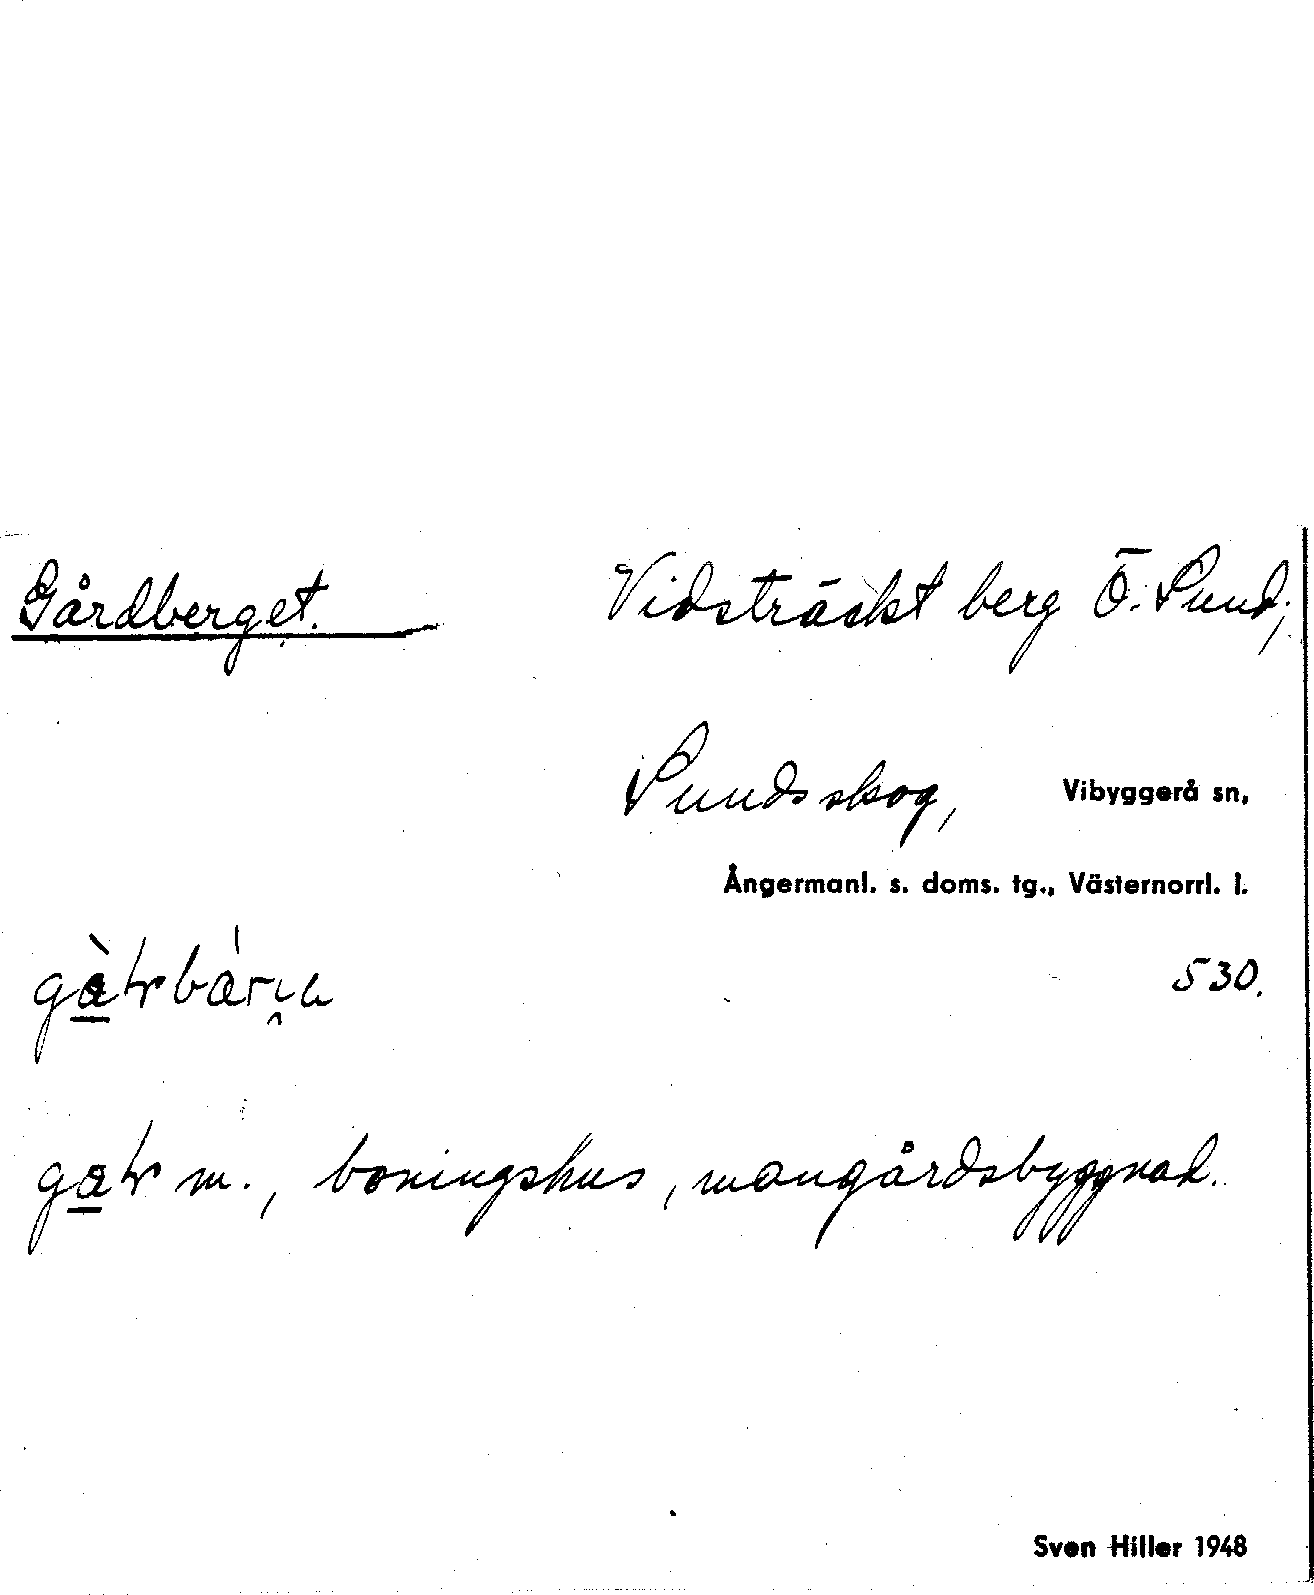 Gårdberget. Vidsträckt berg Ö. Sund;
Sundsskog, Vibyggerå sn,
Ångermanl. s. doms. tg., Västernorrl. l.
530.
m., boningshus, mangårdsbyggnad.
Sven Hiller 1948